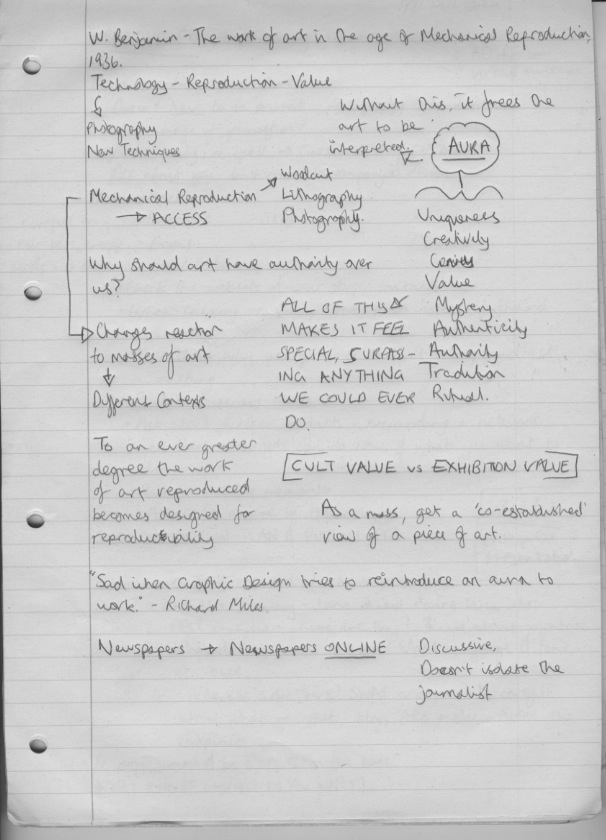 W. Benjamin - The work of art in the age of Mechanical Reproduction,
1936.
Technology - Reproduction - Value
Photography
New Techniques
Without this, it frees the
art to be
interpreted.
AURA
Mechanical Reproduction
→ ACCESS
Woodcut
Lithography
Photography.
Uniqueness
Creativity
Genius
Value
Mystery
Authenticity
Authority
Tradition
Ritual.
Why should art have authority over
us?
ALL OF THIS
MAKES IT FEEL
SPECIAL, SURPASS-
ING ANYTHING
WE COULD EVER
DO.
Changes reaction
to masses of art
Different Contexts
To an ever greater
degree the work
of art reproduced
becomes designed for
reproductibility
CULT VALUE vs EXHIBITION VALUE
As a mass, get a 'co-established'
view of a piece of art.
"Sad when Graphic Design tries to reintroduce an aura to
work." - Richard Miles
Newspapers → Newspapers ONLINE
Discussive,
Doesn't isolate the
journalist